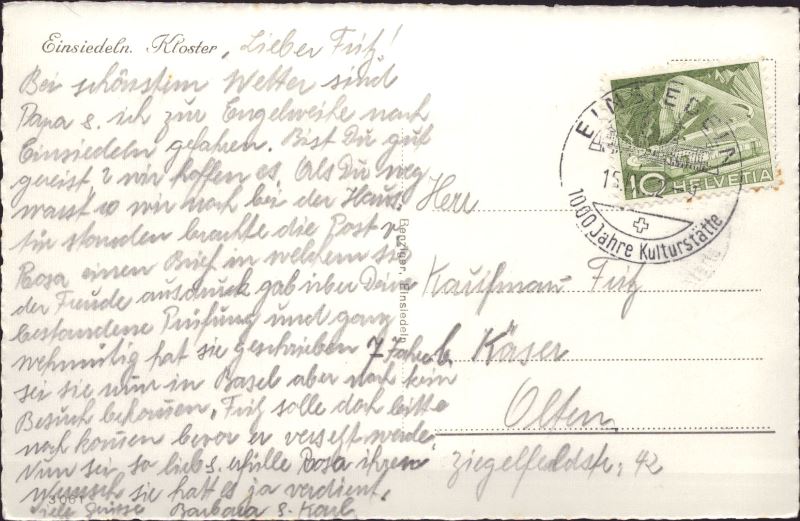 Einsiedeln. Kloster, Lieber Fritz!
Bei schönstem Wetter sind
Papa & ich zur Engelweihe nach
Einsiedeln gefahren. Bist Du gut
gereist? wir hoffen es. Als Du weg
warst & wir noch bei der Haus
tür standen brachte die Post v.
Rosa einen Brief in welchem sie
der Freude ausdruck gab über Deine
bestandene Prüfung und ganz
wehmütig hat sie geschrieben 7 Jahre
sei sie nun in Basel aber noch kein
Besuch bekommen, Fritz solle doch bitte
noch kommen bevor er verreist werde.
Nun sei, so lieb & erfülle Rosa ihren
Wunsch sie hat es ja verdient.
viele Grüsse Barbara & Karl
3061
Benziger, Einsiedeln
EINSIEDELN
1000 Jahre Kulturstätte
10 HELVETIA
Herr
Kaufmann Fritz
Käser
Olten
Ziegelfeldstr. 42